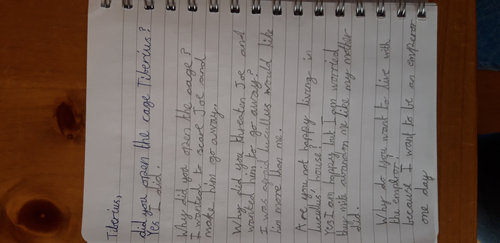 Tiberius,
did you open the cage Tiberius?
Yes I did.
Why did you open the cage?
I wanted to scare Joe and
make him go away.
Why did you threaten Joe and
wanted him to go away?
I was afraid lucullus would like
him more than me.
Are you not happy living in
lucullus' house?
Yes I am happy but I am worried
they will abandon me like my mother
did.
Why do you want to live with
the emperor?
because I want to be an emperor
one day